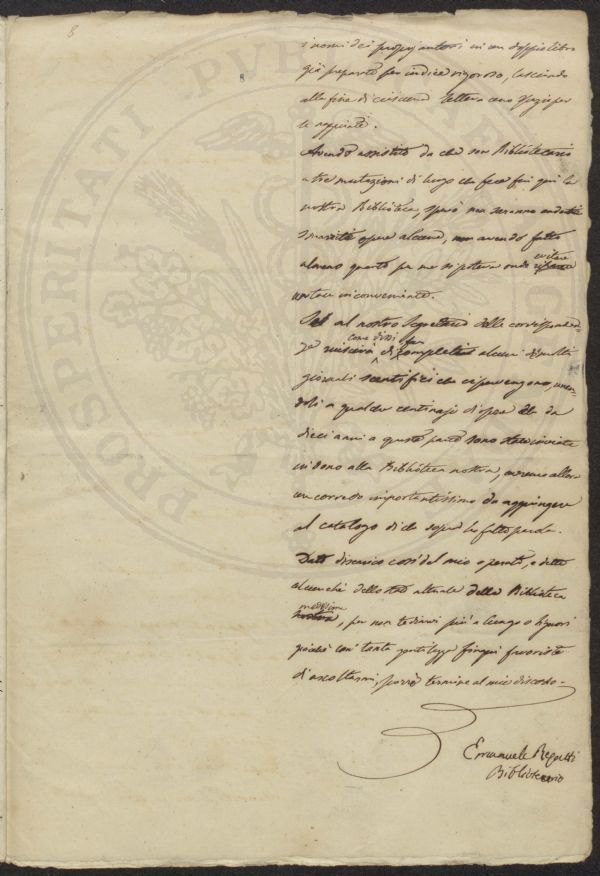 8
i nomi dei proprj autori in un doppio libro
già preparato per indice rigoroso, lasciando
alla fine di ciascuna lettera uno spazio per
le aggiunte.
Avendo assistito da che son Bibliotecario
a tre mutazioni di luogo che fece fin qui la
nostra Biblioteca, spero non saranno andate
smarrite opere alcune, non avendo fatto
almeno quanto per me si poteva onde evitare
un tale inconveniente.
Se al nostro Segretario delle corrisponden
ze riuscirà come dissi di far completare alcuni di molti
giornali scientifici che ci pervengono, unen
doli a qualche centinajo di opere che da
dieci anni a questa parte sono state inviate
in dono alla Biblioteca nostra, avremo allora
un corredo importantissimo da aggiungere
al catalogo di che sopra ho fatto parola.
Dato discarico così del mio operato, e detto
alcunchè dello stato attuale della Biblioteca
medesima, per non tediarvi più a lungo o Signori
giacchè con tanta gentilezza finqui favoriste
d'ascoltarmi, porrò termine al mio discorso.
Emanuele Regatti
Bibliotecario
PROSPERITATI PUBLICAE